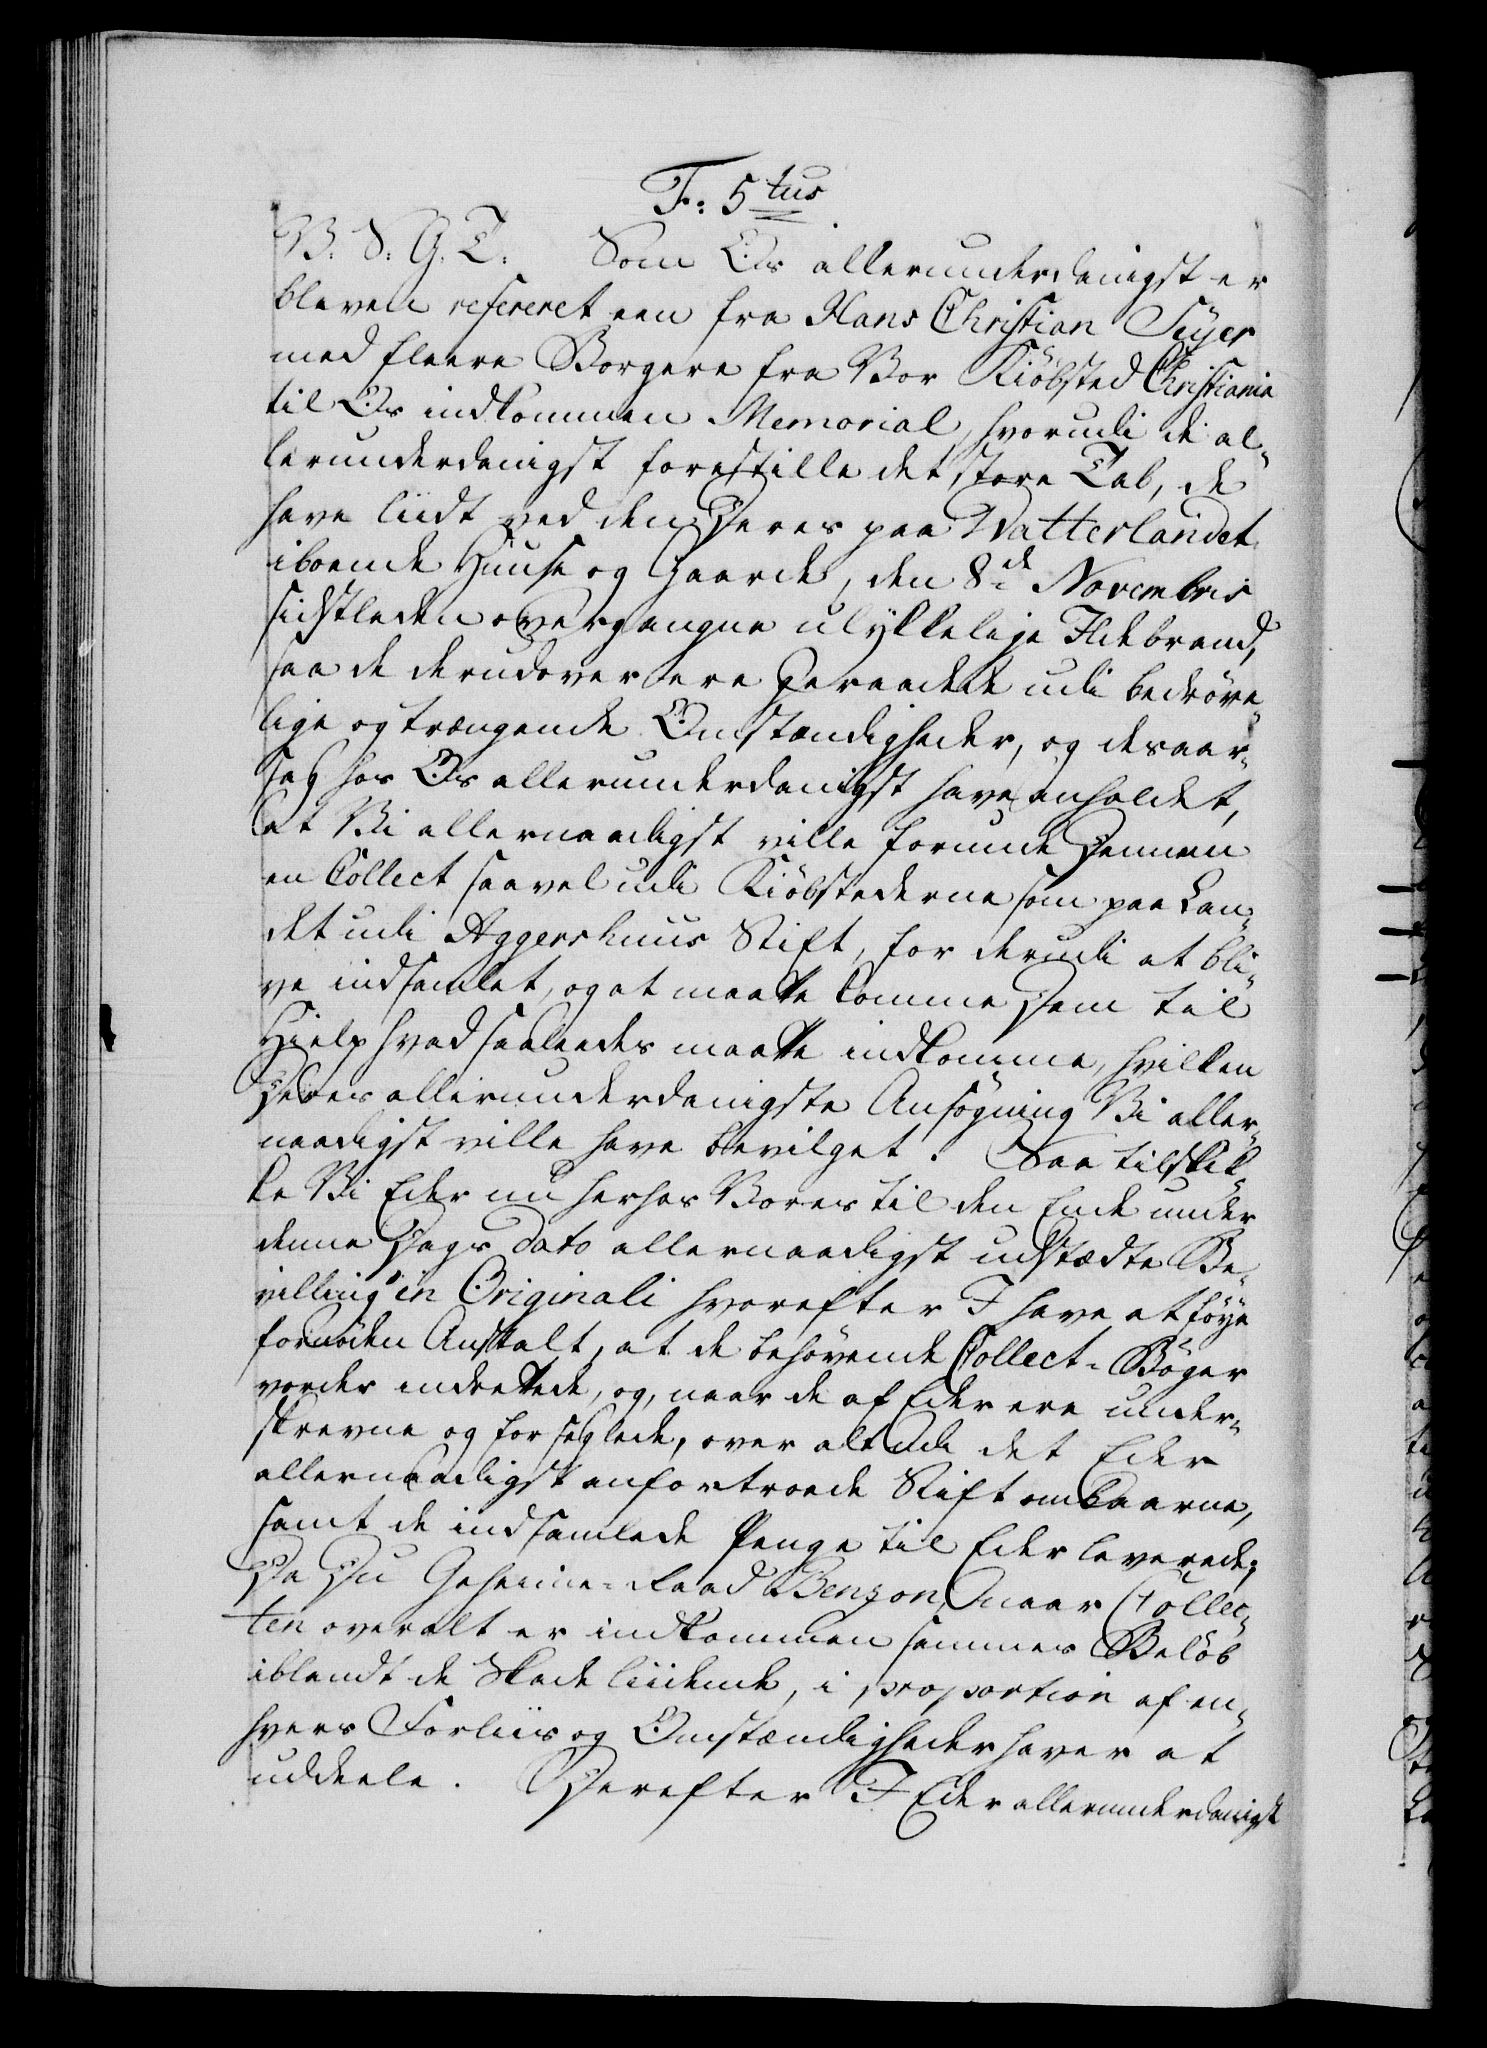 F: 5tus
V. S. G. T. Som Os allerunderdanigst er
bleven refereret een fra Hans Christian Seyer
med fleere Borgere fra Vor Kiöbsted Christiania
til Os indkommen Memorial, hvorudi de al-
lerunderdanigst forestille det store Tab, de
have liidt ved den Deres paa Watterlandet
iboende Huuse og Gaarde, den 8de Novembris
sidstleden overgangne ulykkelige Ildebrand,
saa de derudover ere geraadede udi bedröve-
lige og trængende Omstændigheder, og desaar-
sag hos Os allerunderdanigst have anholdet,
at Vi allernaadigst ville forunde Dennem
en Collect saavel udi Kiöbstederne som paa Lan-
det udi Aggershuus Stift, for derudi at bli-
ve indsamlet, og at maatte komme Dem til
Hielp hvad saaledes maatte indkomme, hvilken
Deres allerunderdanigste Ansögning Vi aller-
naadigst ville have bevilget. Saa tilskik-
ke Vi Eder nu herhos Vores til den Ende under
denne Dags Dato allernaadigst udstædte Be-
villing in Originali hvorefter I have at föye
fornöden Anstalt, at de behövende Collect-Böger
vorder indrettede, og, naar de af Eder ere under-
skrevne og forseglede, over alt udi det Eder
allernaadigst anfortroede Stift ombaarne,
samt de indsamlede Penge til Eder leverede;
Da Du Geheime-Raad Benzon, naar Collec-
ten overalt er indkommen sammes Belöb
iblandt de Skade liidende, i proportion af en-
hvers Forliis og Omstændigheder haver at
uddeele. Derefter I Eder allerunderdanigst